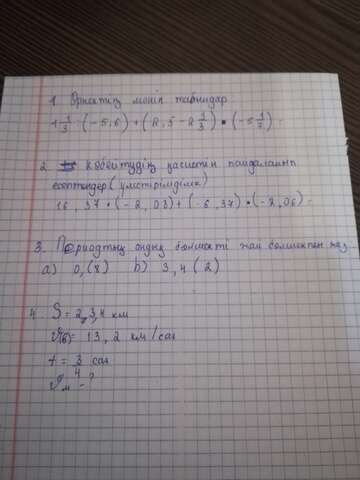 1. Өрнектің мәнін табыңдар
1 1/3 · (-5,6) + (2,5 - 2 2/3) · (-5 1/7) =
2. көбейтудің қасиетін пайдаланып
есептеңдер (үлестірімділік)
16,37 · (-2,03) + (-6,37) · (-2,06) =
3. Периодтық ондық бөлшекті жай бөлшекпен жаз
а) 0,(8) b) 3,4(2)
4. S = 23,4 км
v(б) = 13,2 км/сағ
t = 3/4 сағ
vм - ?